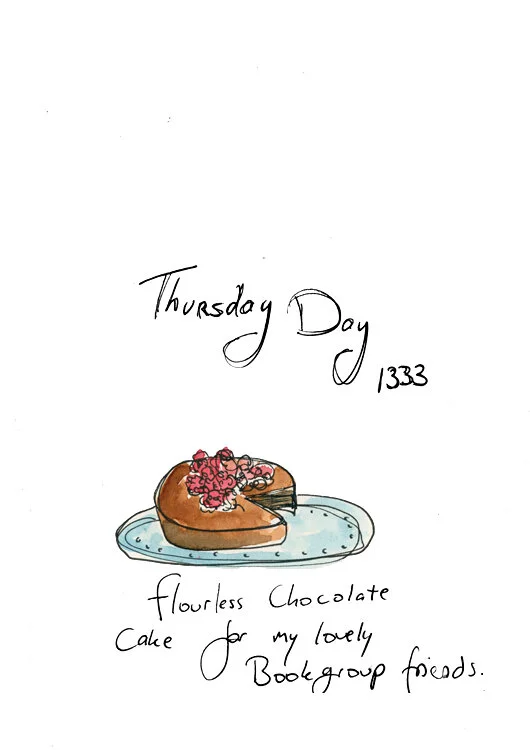 Thursday Day
1333
flourless Chocolate
Cake for my lovely
Bookgroup friends.